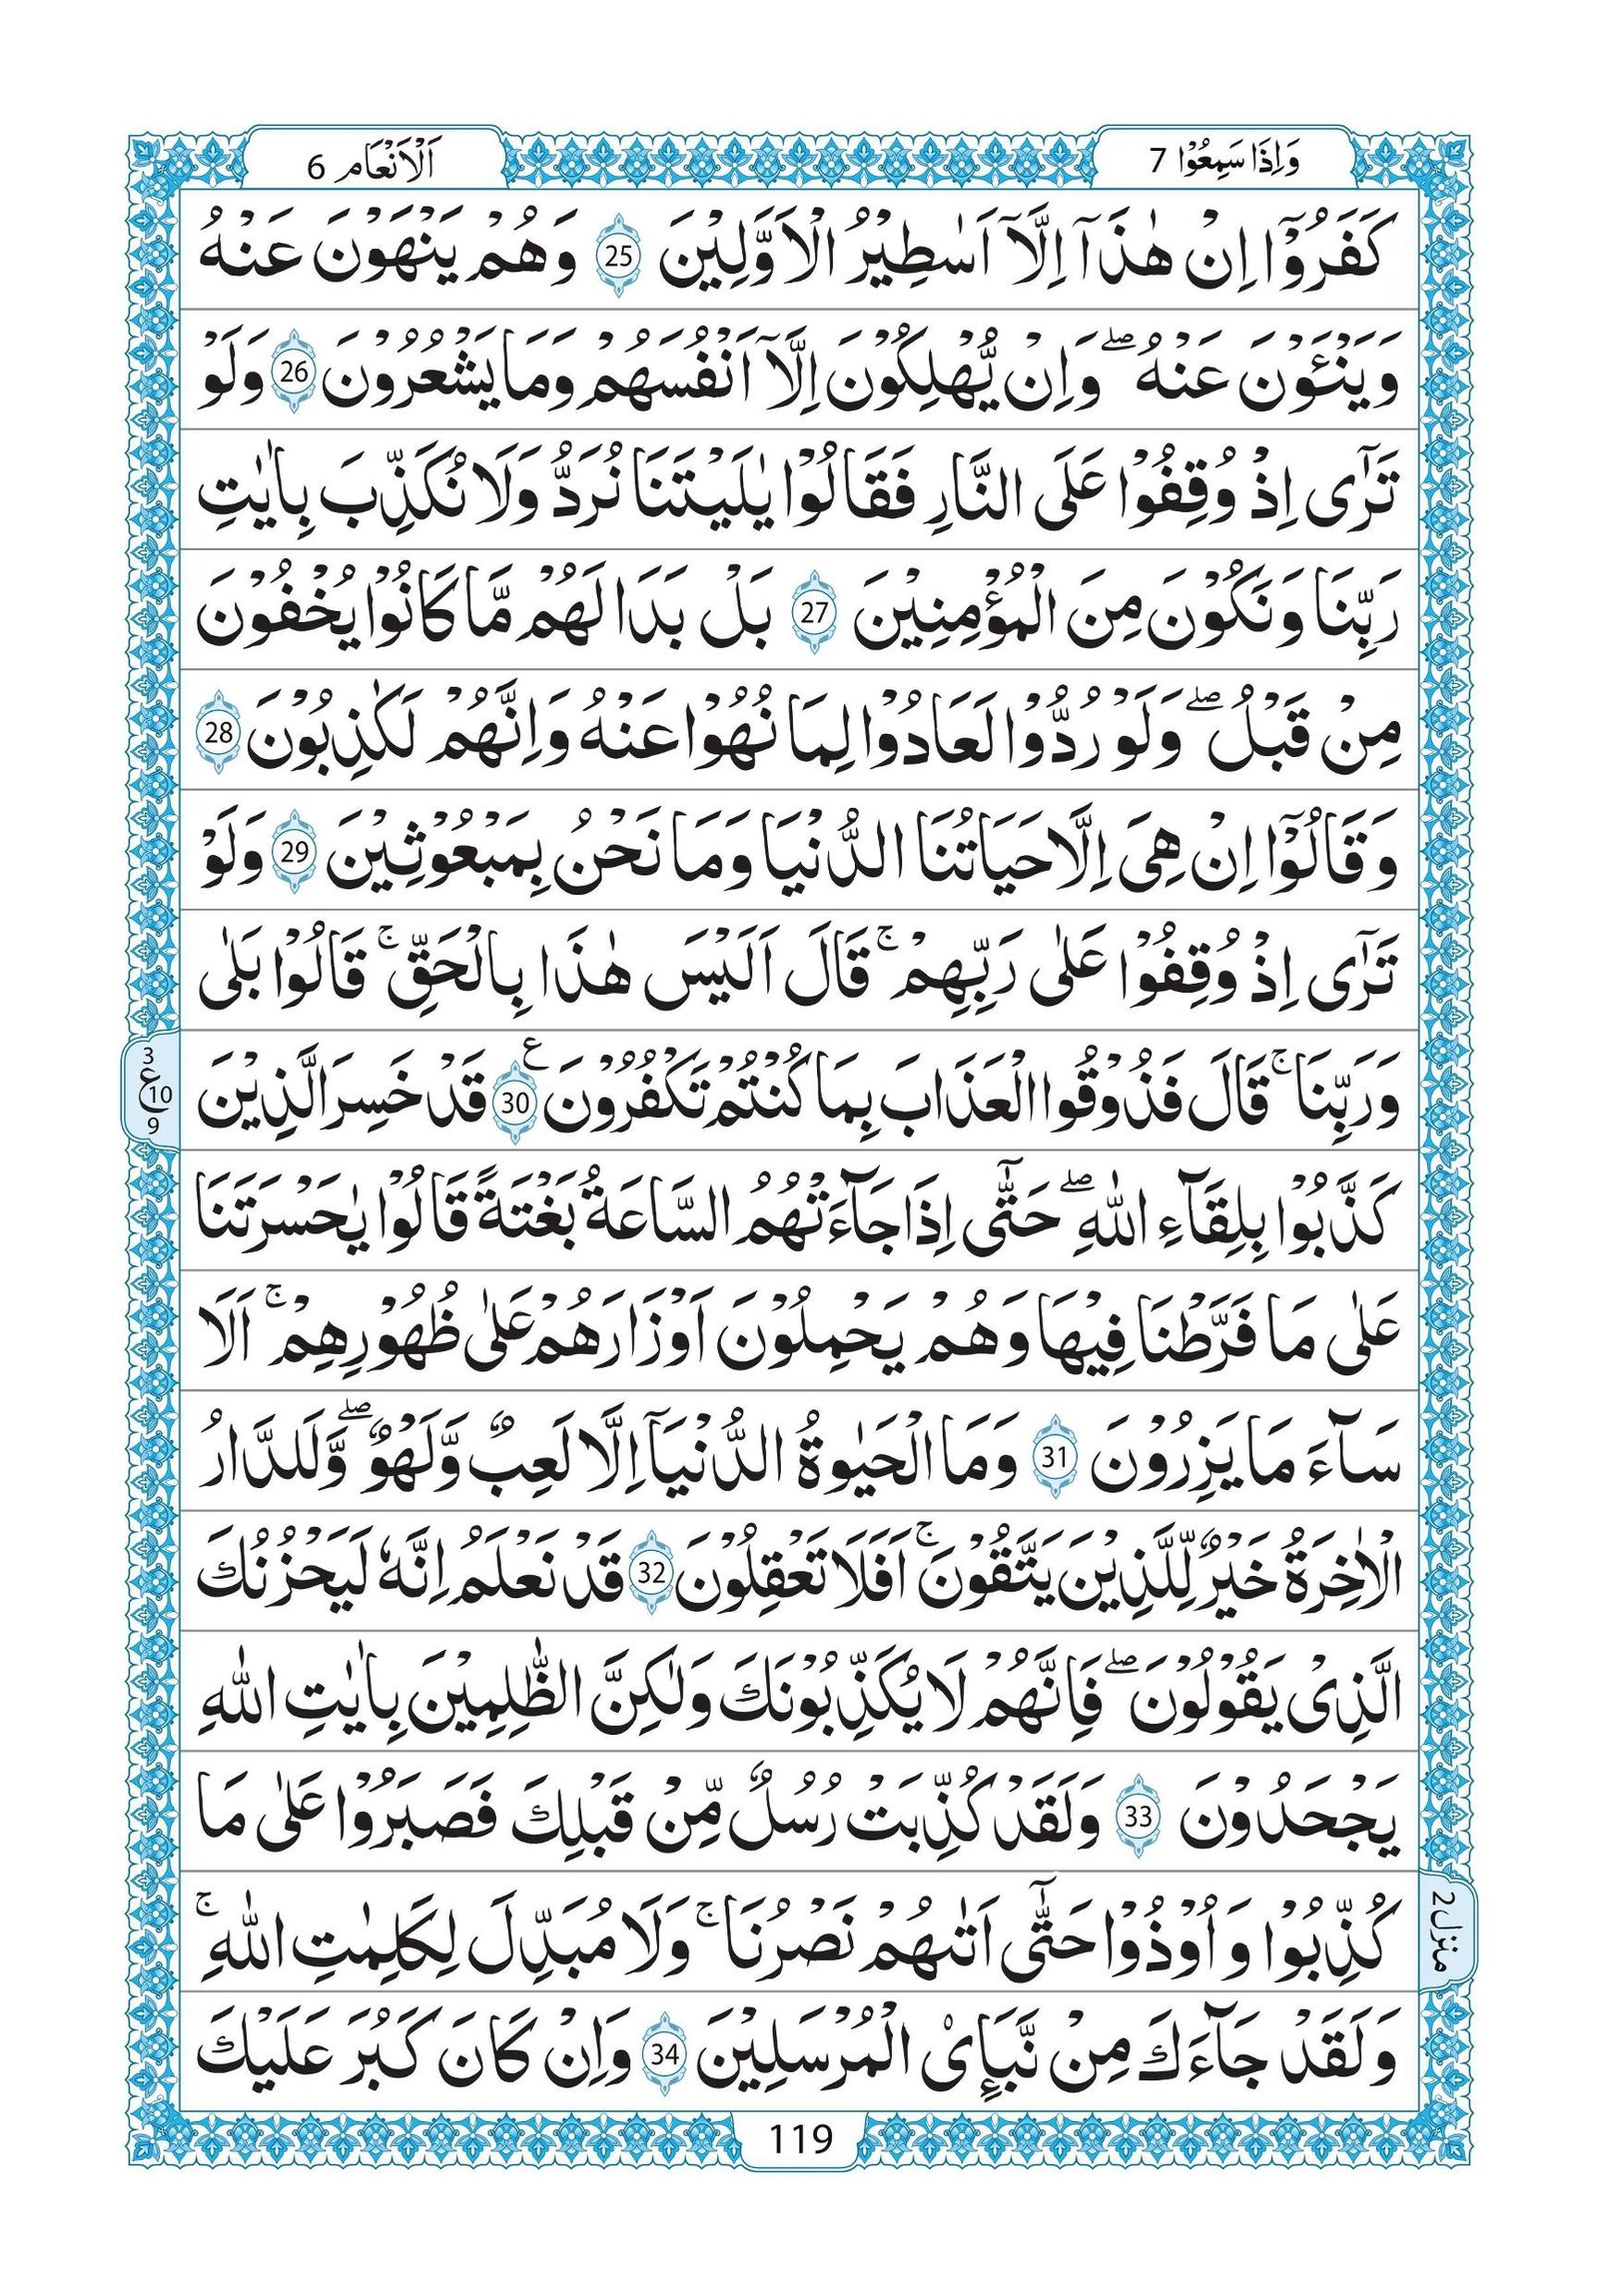 وَاِذَا سَمِعُوْا 7
اَلْاَنْعَام 6
كَفَرُوْٓا اِنْ هٰذَآ اِلَّآ اَسٰطِيْرُ الْاَوَّلِيْنَ 25 وَهُمْ يَنْهَوْنَ عَنْهُ
وَيَنْـَٔوْنَ عَنْهُ ۖ وَاِنْ يُّهْلِكُوْنَ اِلَّآ اَنْفُسَهُمْ وَمَا يَشْعُرُوْنَ 26 وَلَوْ
تَرٰٓى اِذْ وُقِفُوْا عَلَى النَّارِ فَقَالُوْا يٰلَيْتَنَا نُرَدُّ وَلَا نُكَذِّبَ بِاٰيٰتِ
رَبِّنَا وَنَكُوْنَ مِنَ الْمُؤْمِنِيْنَ 27 بَلْ بَدَا لَهُمْ مَّا كَانُوْا يُخْفُوْنَ
مِنْ قَبْلُ ۖ وَلَوْ رُدُّوْا لَعَادُوْا لِمَا نُهُوْا عَنْهُ وَاِنَّهُمْ لَكٰذِبُوْنَ 28
وَقَالُوْٓا اِنْ هِىَ اِلَّا حَيَاتُنَا الدُّنْيَا وَمَا نَحْنُ بِمَبْعُوْثِيْنَ 29 وَلَوْ
تَرٰٓى اِذْ وُقِفُوْا عَلٰى رَبِّهِمْ ۚ قَالَ اَلَيْسَ هٰذَا بِالْحَقِّ ۚ قَالُوْا بَلٰى
وَرَبِّنَا ۚ قَالَ فَذُوْقُوا الْعَذَابَ بِمَا كُنْتُمْ تَكْفُرُوْنَ ع 30 قَدْ خَسِرَ الَّذِيْنَ
3
ع 10
9
كَذَّبُوْا بِلِقَآءِ اللّٰهِ ۖ حَتّٰٓى اِذَا جَآءَتْهُمُ السَّاعَةُ بَغْتَةً قَالُوْا يٰحَسْرَتَنَا
عَلٰى مَا فَرَّطْنَا فِيْهَا وَهُمْ يَحْمِلُوْنَ اَوْزَارَهُمْ عَلٰى ظُهُوْرِهِمْ ۚ اَلَا
سَآءَ مَا يَزِرُوْنَ 31 وَمَا الْحَيٰوةُ الدُّنْيَآ اِلَّا لَعِبٌ وَّلَهْوٌ ۖ وَّلَلدَّارُ
الْاٰخِرَةُ خَيْرٌ لِّلَّذِيْنَ يَتَّقُوْنَ ۚ اَفَلَا تَعْقِلُوْنَ 32 قَدْ نَعْلَمُ اِنَّهٗ لَيَحْزُنُكَ
الَّذِىْ يَقُوْلُوْنَ ۖ فَاِنَّهُمْ لَا يُكَذِّبُوْنَكَ وَلٰكِنَّ الظّٰلِمِيْنَ بِاٰيٰتِ اللّٰهِ
يَجْحَدُوْنَ 33 وَلَقَدْ كُذِّبَتْ رُسُلٌ مِّنْ قَبْلِكَ فَصَبَرُوْا عَلٰى مَا
كُذِّبُوْا وَاُوْذُوْا حَتّٰٓى اَتٰىهُمْ نَصْرُنَا ۚ وَلَا مُبَدِّلَ لِكَلِمٰتِ اللّٰهِ ۚ
منزل 2
وَلَقَدْ جَآءَكَ مِنْ نَّبَاِى الْمُرْسَلِيْنَ 34 وَاِنْ كَانَ كَبُرَ عَلَيْكَ
119